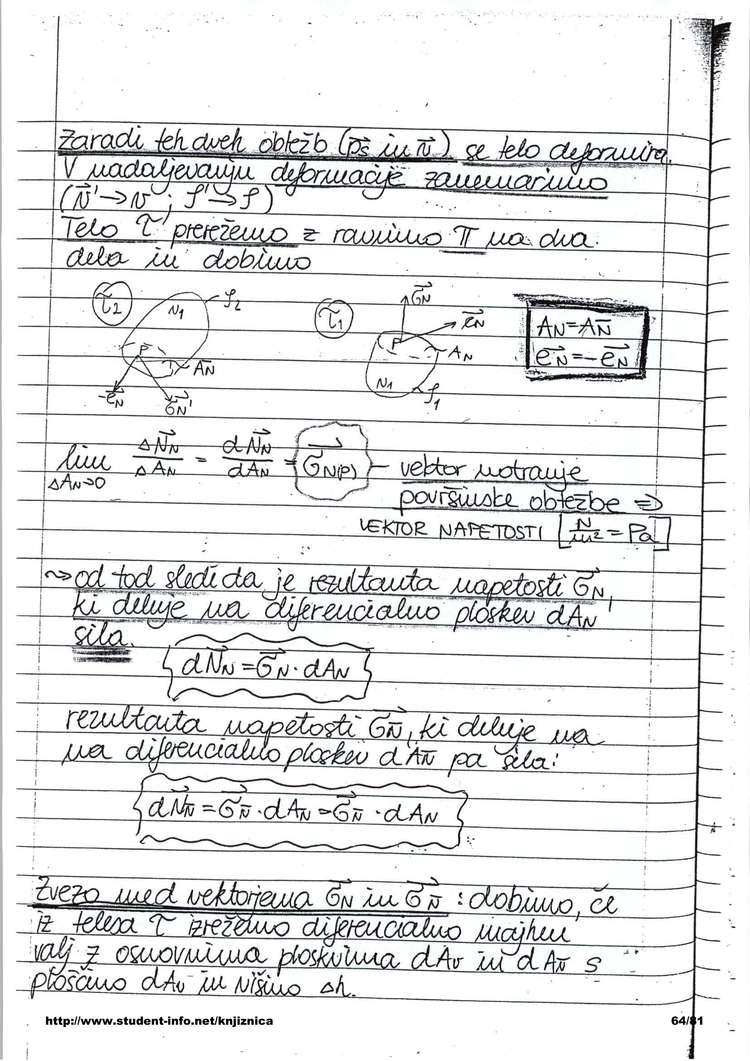 Zaradi teh dveh obtežb (p⃗s in v⃗) se telo deformira.
V nadaljevanju deformacije zanemarimo
(v⃗' → v ; ℐ' → ℐ)
Telo τ prerežemo z ravnino π na dva
dela in dobimo
τ2 N1 ℐ2 P AN̄ -e⃗N σ⃗N'
τ1 σ⃗N e⃗N P AN N1 ℐ1
AN = AN̄
e⃗N = -e⃗N̄
lim ΔN⃗N / ΔAN = dN⃗N / dAN = σ⃗N(P) – vektor notranje
ΔAN→0
površinske obtežbe ⇒
VEKTOR NAPETOSTI [N/m² = Pa]
~> od tod sledi da je rezultanta napetosti σ⃗N,
ki deluje na diferencialno ploskev dAN
sila.
dN⃗N = σ⃗N · dAN
rezultanta napetosti σ⃗N̄, ki deluje na
na diferencialno ploskev dAN̄ pa sila:
dN⃗N̄ = σ⃗N̄ · dAN̄ = σ⃗N̄ · dAN
Zvezo med vektorjema σ⃗N in σ⃗N̄ : dobimo, če
iz telesa τ izrežemo diferencialno majhen
valj z osnovnima ploskvima dAv in dAv̄ s
ploščino dAv in višino Δh.
http://www.student-info.net/knjiznica
64/81